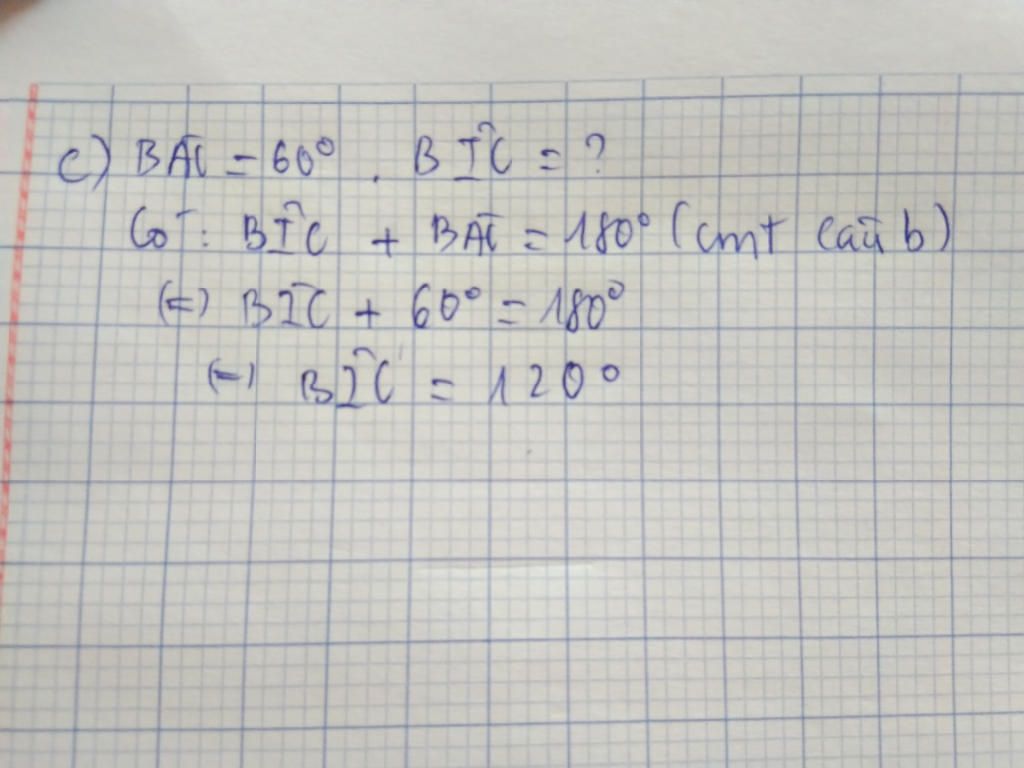 c) BÂC = 60° . BÎC = ?
Có: BÎC + BÂC = 180° (cmt câu b)
(=) BÎC + 60° = 180°
(=) BÎC = 120°